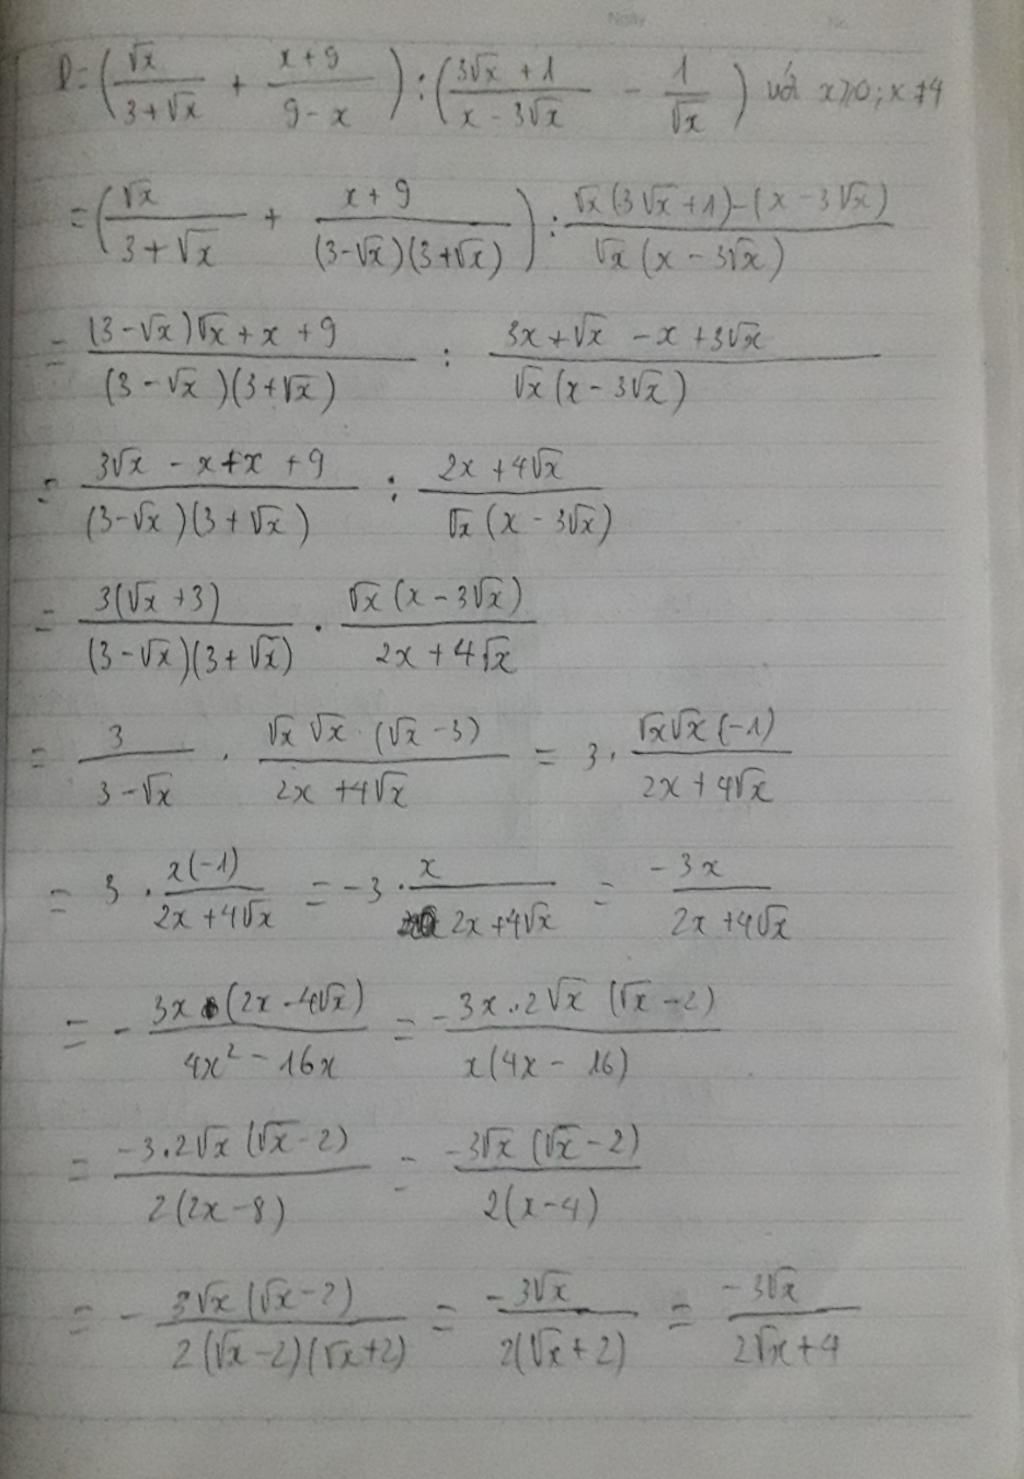 Ngày No.
P = (√x/(3+√x) + (x+9)/(9-x)) : ((3√x+1)/(x-3√x) - 1/√x) với x≥0; x≠4
= (√x/(3+√x) + (x+9)/((3-√x)(3+√x))) : (√x(3√x+1)-(x-3√x))/(√x(x-3√x))
= ((3-√x)√x+x+9)/((3-√x)(3+√x)) : (3x+√x-x+3√x)/(√x(x-3√x))
= (3√x-x+x+9)/((3-√x)(3+√x)) : (2x+4√x)/(√x(x-3√x))
= 3(√x+3)/((3-√x)(3+√x)) . √x(x-3√x)/(2x+4√x)
= 3/(3-√x) . √x√x.(√x-3)/(2x+4√x) = 3. √x√x(-1)/(2x+4√x)
= 3. x(-1)/(2x+4√x) = -3. x/(2x+4√x) = -3x/(2x+4√x)
= - 3x.(2x-4√x)/(4x²-16x) = -3x.2√x(√x-2)/(x(4x-16))
= -3.2√x(√x-2)/(2(2x-8)) = -3√x(√x-2)/(2(x-4))
= - 3√x(√x-2)/(2(√x-2)(√x+2)) = -3√x/(2(√x+2)) = -3√x/(2√x+4)